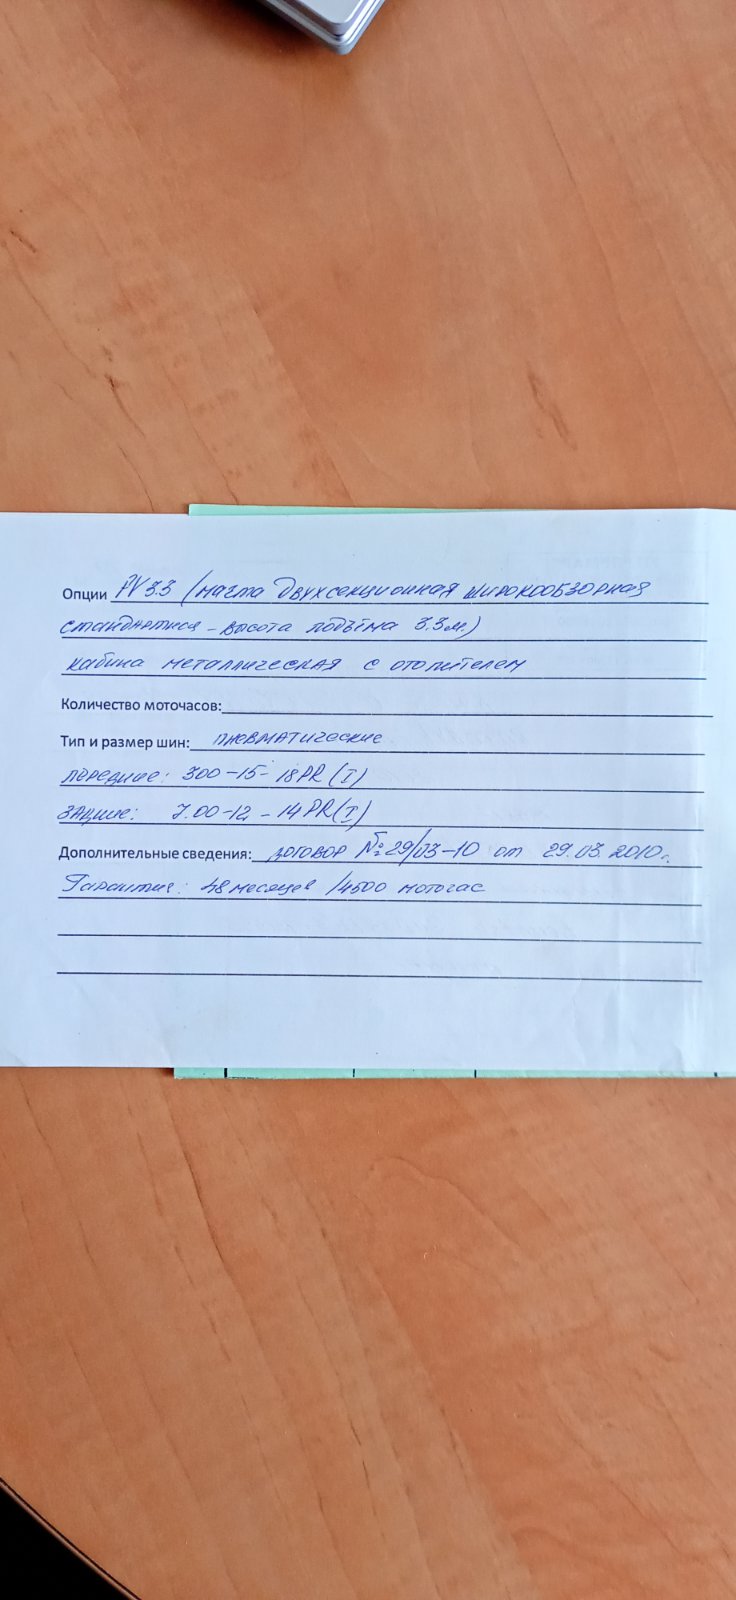 Опции PV33 (мачта двухсекционная широкообзорная
стандартная - высота подъёма 3.3м.)
кабина металлическая с отопителем
Количество моточасов:
Тип и размер шин: пневматические
передние: 300-15-18PR (I)
задние: 7.00-12-14PR(I)
Дополнительные сведения: договор №29/03-10 от 29.03.2010г.
Гарантия: 48 месяцев /4500 моточас